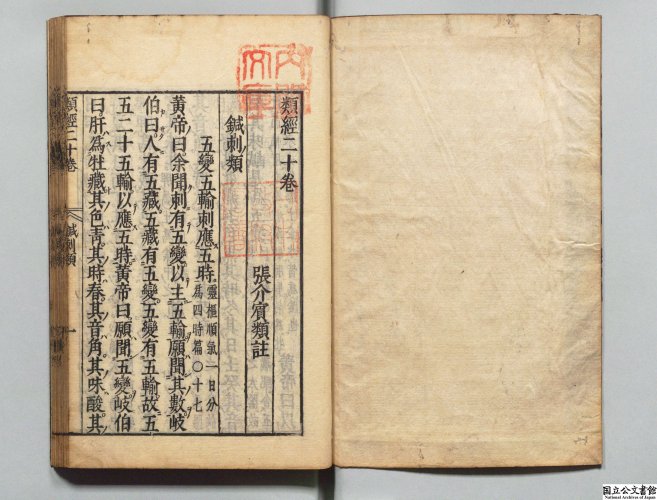 類經二十卷
張介賓類註
鍼刺類
五變五輸刺應五時
靈樞順氣一日分
爲四時篇〇十七
黄帝曰余聞刺有五變以主五輸願聞其數岐
伯曰人有五藏五藏有五變五變有五輸故五
五二十五輸以應五時黄帝曰願聞五變岐伯
曰肝爲牡藏其色青其時春其音角其味酸其
類經二十卷
鍼刺類
一
内閣
文庫
国立公文書館
National Archives of Japan